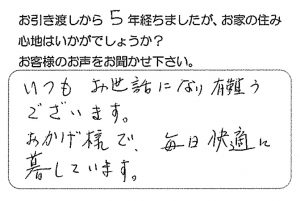 お引き渡しから 5 年経ちましたが、お家の住み
心地はいかがでしょうか？
お客様のお声をお聞かせ下さい。
いつも お世話になり 有難う
ございます。
おかげ様で、毎日快適に
暮しています。